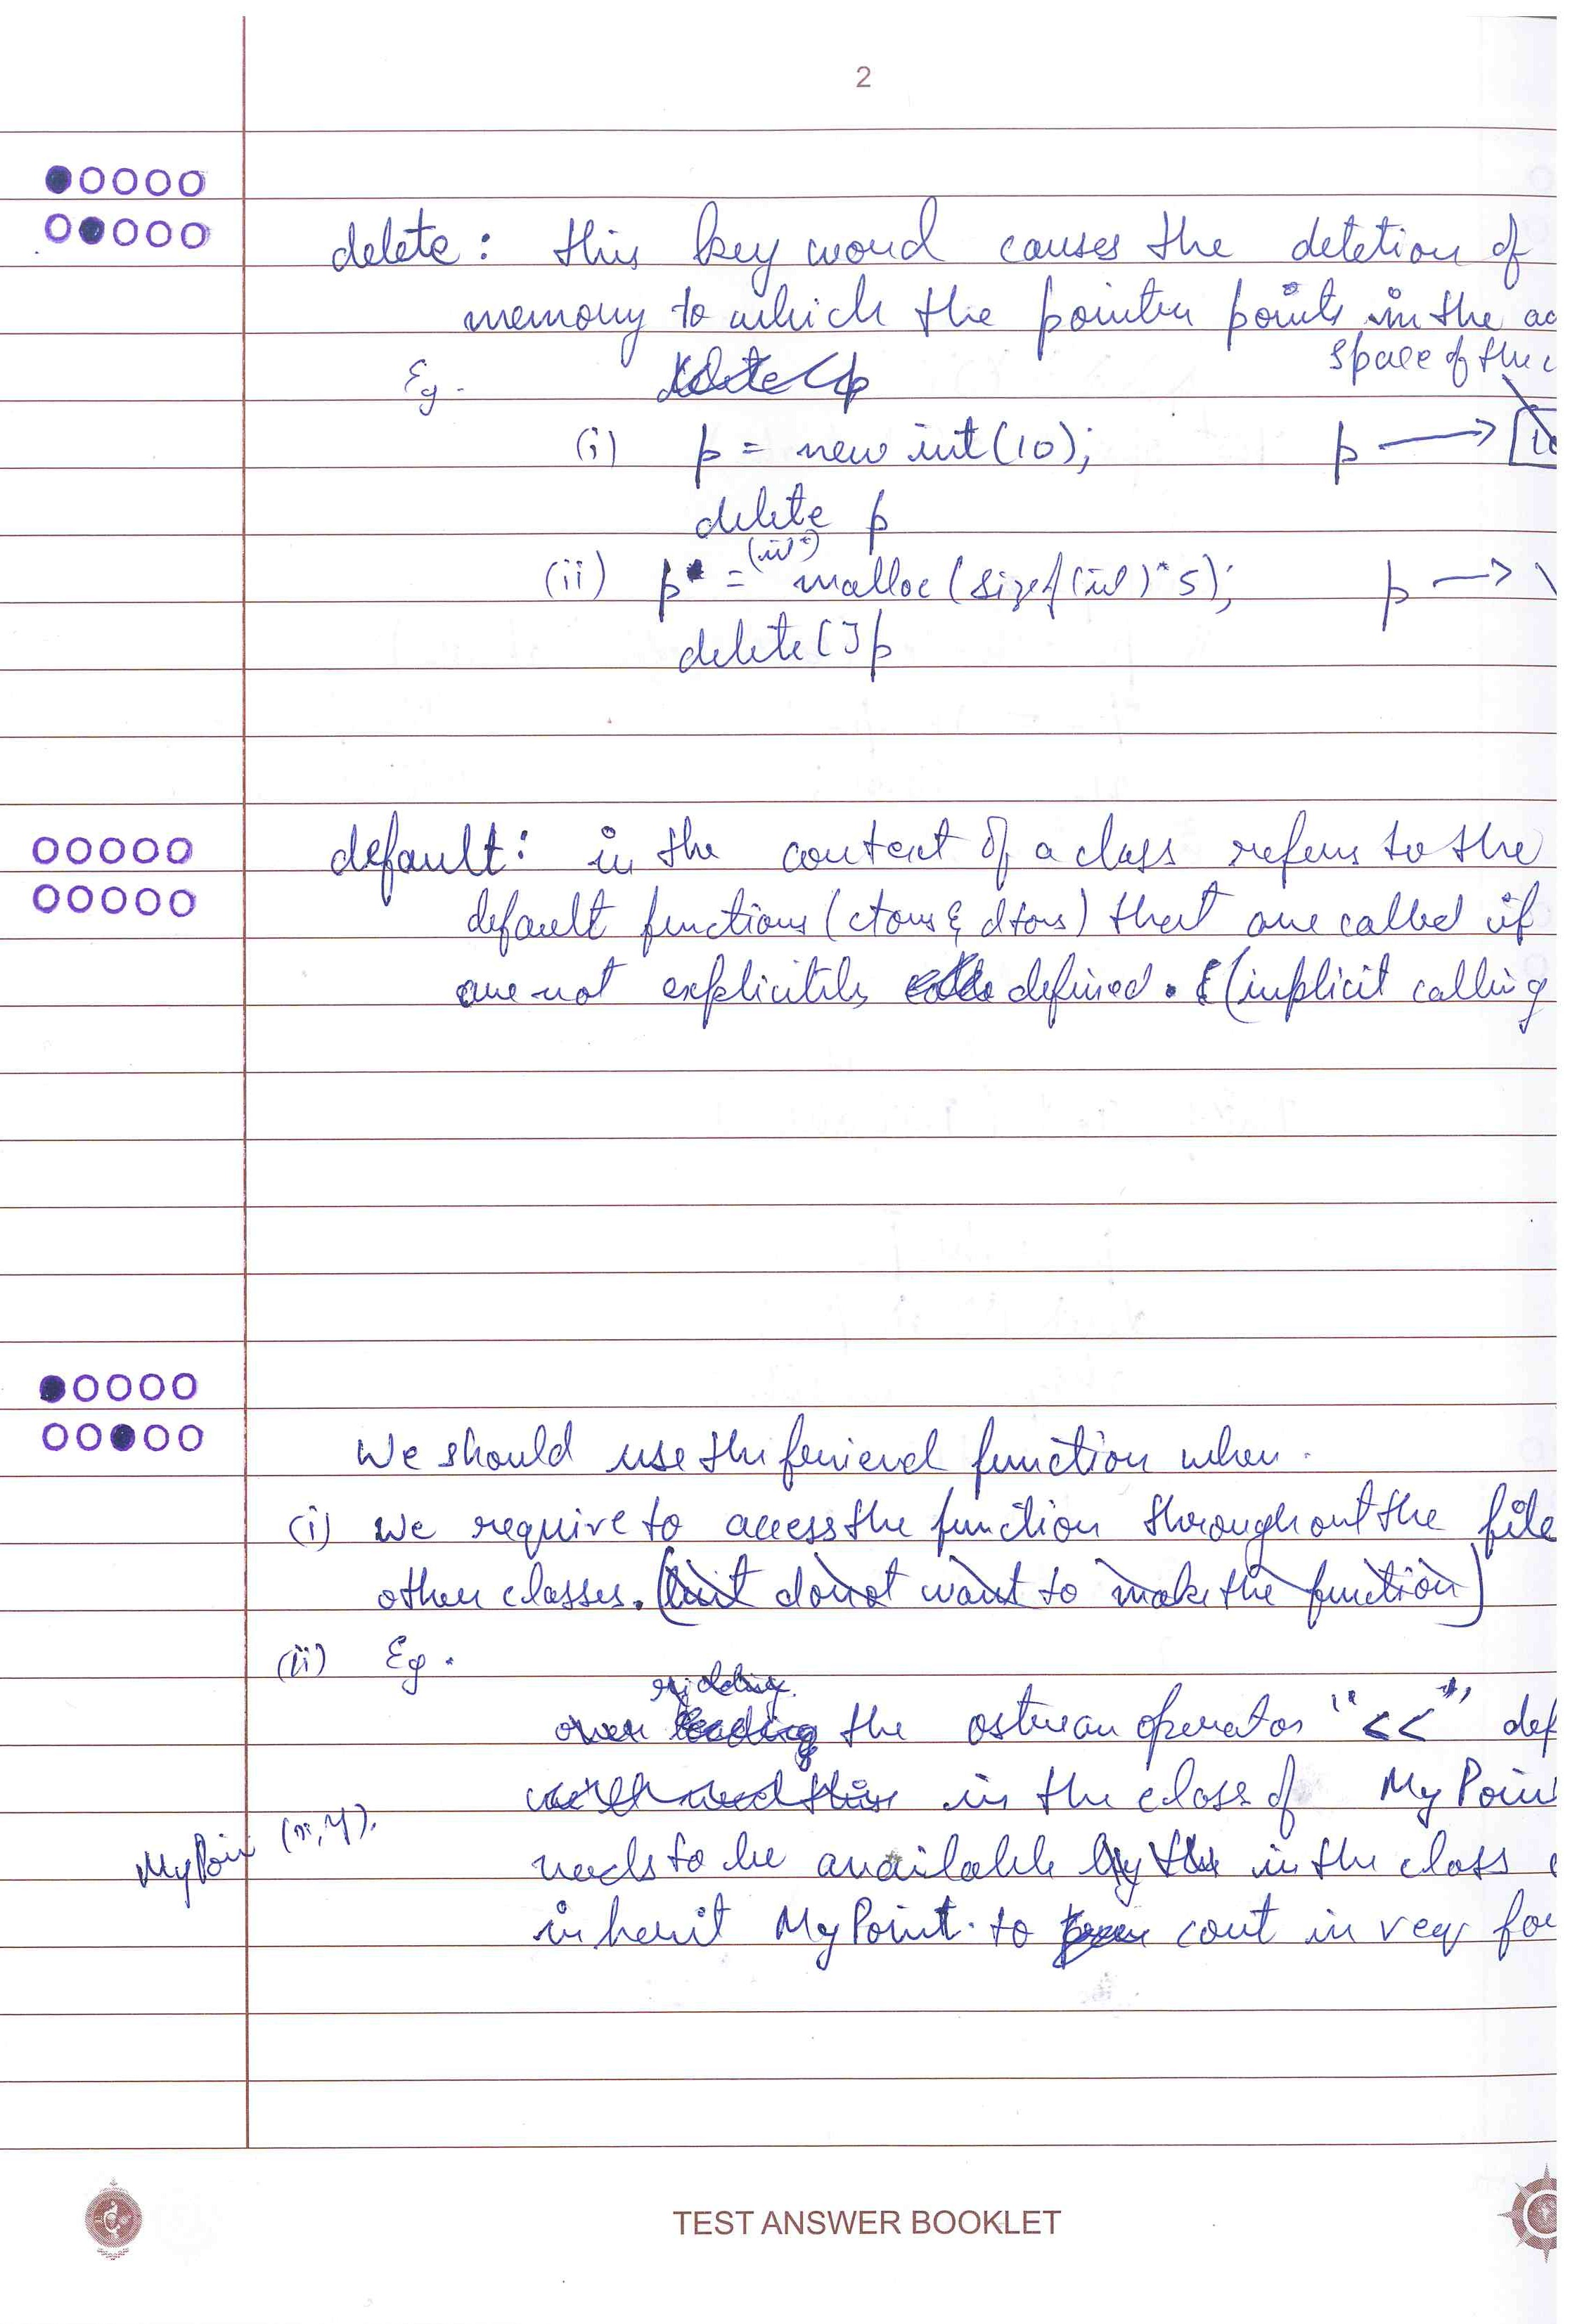 2
delete: this key word causes the detetion of
memory to which the pointer points in the
space of the
Eg.
(i) p = new int(10); p →
delete p
(int*)
(ii) p = malloc(sizeof(int)*5); p →
delete[]p
default: in the context of a class refers to the
default functions (ctors & dtors) that are called if
are not explicitily defined. (implicit calling
We should use the friend function when.
(i) We require to access the function throughout the file
other classes. (but donot want to make the function)
(ii) Eg.
ridding
over the ostream operator "<<" def
in the class of MyPoin
MyPoin (x,y).
needs to be available in the class
inherit MyPoint. to cout in req for
TEST ANSWER BOOKLET